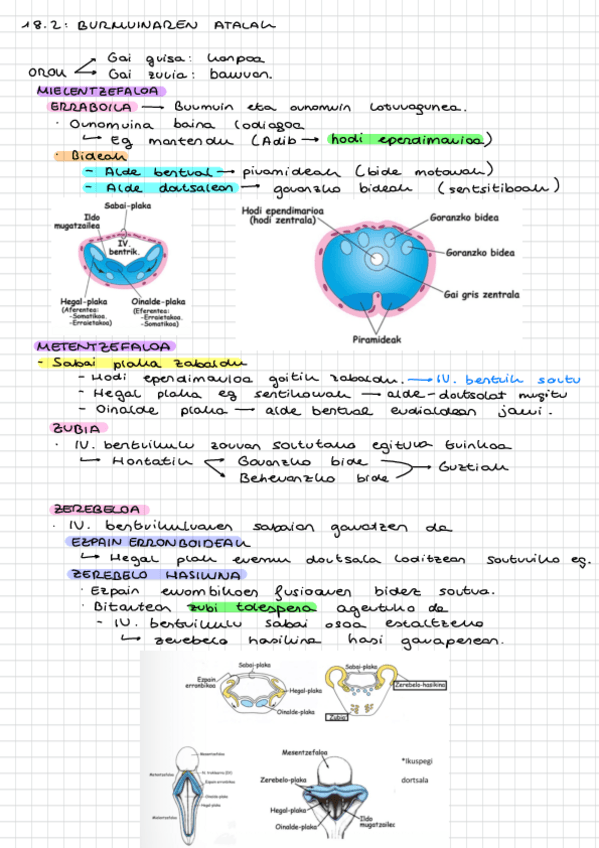 18.2: BURMUINAREN ATALAK
OROK
Gai grisa: kanpoa
Gai zuria: barruan.
MIELENTZEFALOA
ERRABOILA → Burmuin eta ornomuin loturagunea.
· Ornomuina baina lodiagoa
↳ Eg mantendu (Adib → hodi ependimarioa)
· Bideak
- Alde bentral → piramideak (bide motorrak)
- Alde dortsalean → goranzko bideak (sentsitiboak)
Sabai-plaka
Ildo mugatzailea
IV. bentrik.
Hegal-plaka
(Aferentea:
-Somatikoa.
-Erraietakoa)
Oinalde-plaka
(Eferentea:
-Erraietakoa.
-Somatikoa)
Hodi ependimarioa
(hodi zentrala)
Goranzko bidea
Goranzko bidea
Gai gris zentrala
Piramideak
METENTZEFALOA
- Sabai plaka zabaldu
- Hodi ependimarioa goitik zabaldu. → IV. bentrik sortu
- Hegal plaka eg sentikorrak → alde-dortsolat mugitu
- Oinalde plaka → alde bentral erdialdean jarri.
ZUBIA
· IV. bentrikulu zoruan sortutako egitura trinkoa
↳ Hortatik
Goranzko bide
Beheranzko bide
→ Guztiak
ZEREBELOA
· IV. bentrikuluaren sabaian garatzen da
EZPAIN ERRONBOIDEAK
↳ Hegal plak eremu dortsala loditzean sorturiko eg.
ZEREBELO HASIKINA
· Ezpain errombikoen fusioaren bidez sortua.
· Bitartean zubi tolespera agertuko da
- IV. bentrikulu sabai osoa estaltzeko
↳ zerebelo hasikina hasi garapenean.
Sabai-plaka
Ezpain erronbikoa
Hegal-plaka
Oinalde-plaka
Sabai-plaka
Zerebelo-hasikina
Zubia
Mesentzefaloa
Metentzefaloa
Ezpain erronbikoa
Oinalde-plaka
Hegal-plaka
Mielentzefaloa
Mesentzefaloa
Zerebelo-plaka
Hegal-plaka
Oinalde-plaka
Ildo mugatzailea
*Ikuspegi
dortsala